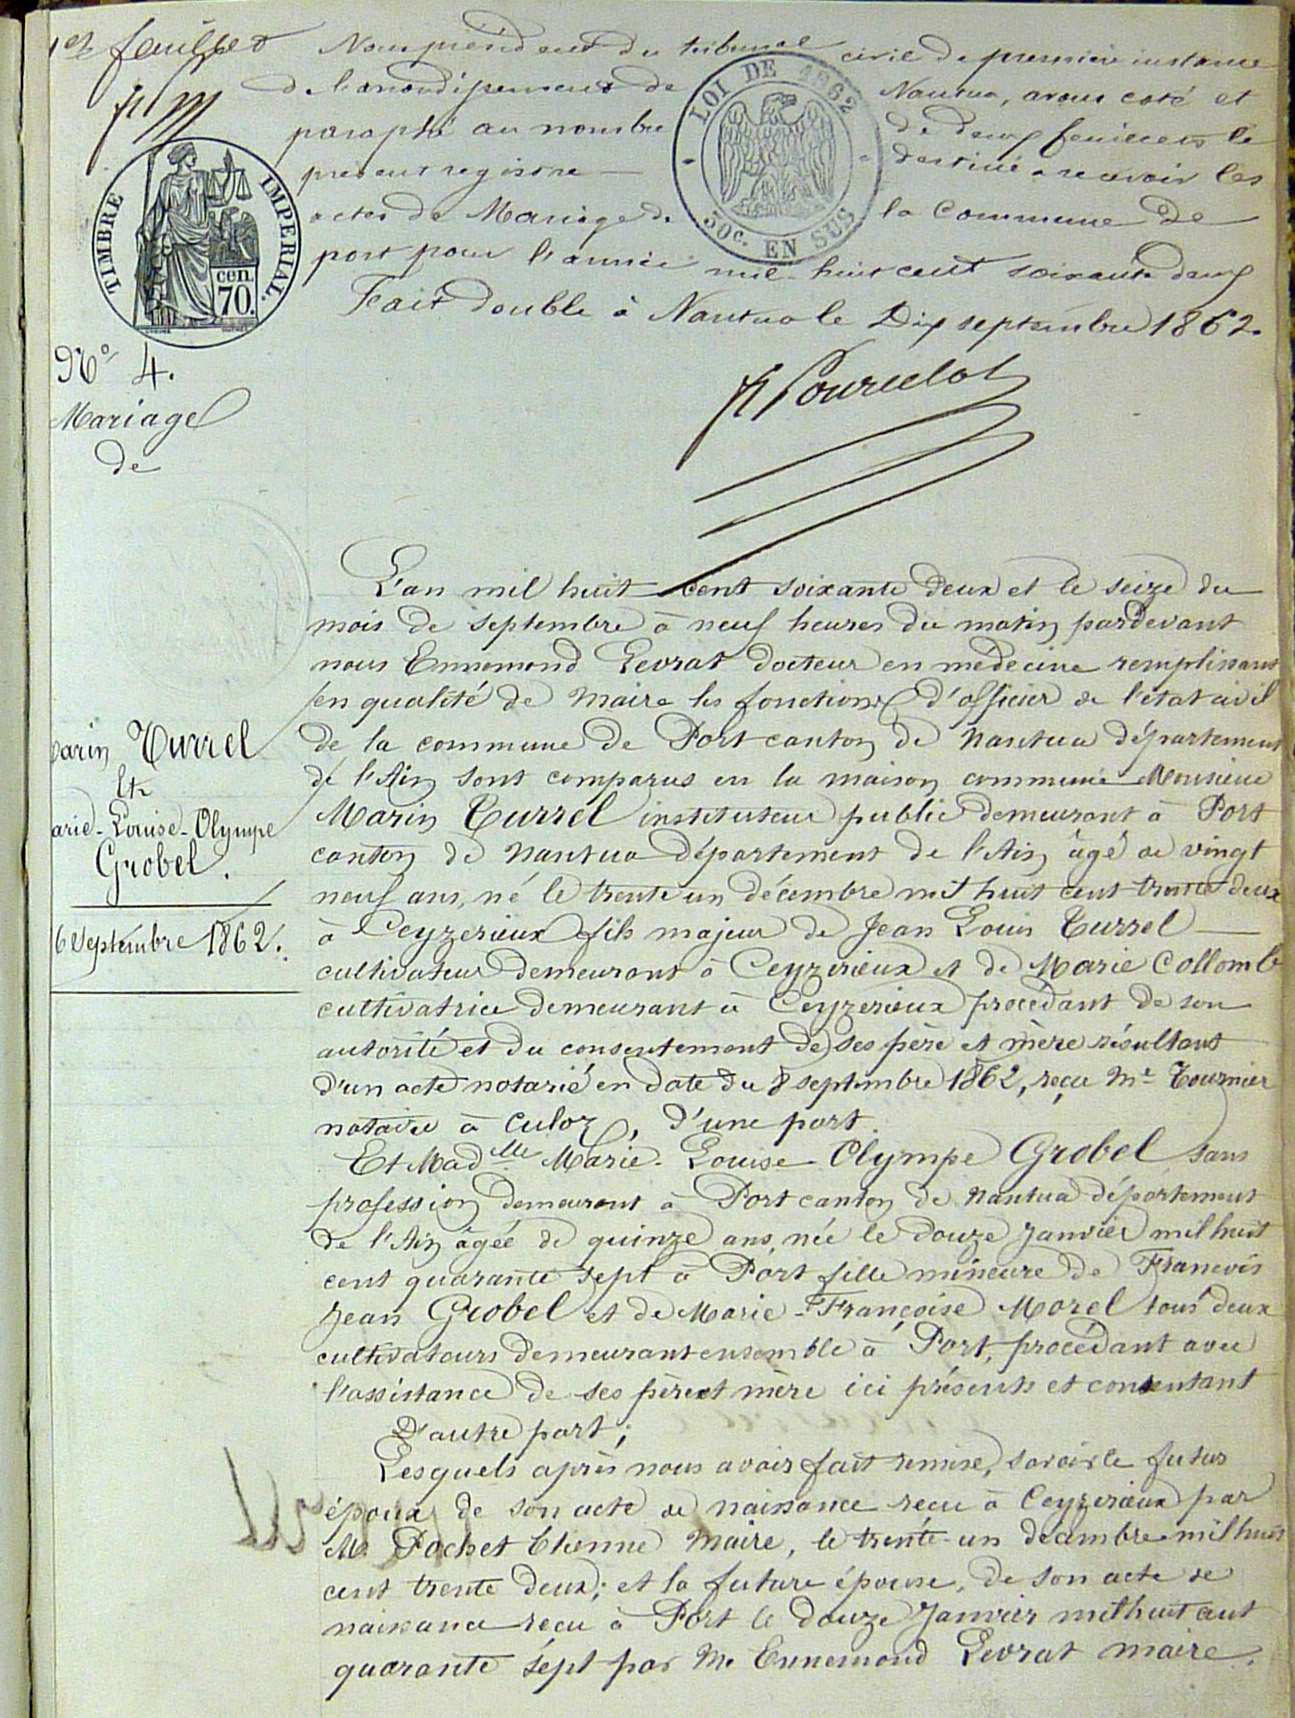 1er feuillet
Nous président du tribunal civil de première instance
de l'arrondissement de Nantua, avons coté et
paraphé au nombre de deux feuillets le
présent registre destiné a recevoir les
actes de Mariage de la Commune de
port pour l'année mil huit cent soixante deux
Fait double à Nantua le Dix septembre 1862.
LOI DE 1862
50c. EN SUS
TIMBRE IMPERIAL.
cen.
70.
No 4.
Mariage
de
arin Turrel
et
arie-Louise-Olympe
Grobel.
16 Septembre 1862.
L'an mil huit cent soixante deux et le seize du
mois de septembre à neuf heures du matin pardevant
nous Ennemond Levrat docteur en médecine remplissant
en qualité de maire les fonctions d'officier de l'état civil
de la commune de Port canton de Nantua département
de l'Ain sont comparus en la maison commune Monsieur
Marin Turrel instituteur public demeurant à Port
canton de Nantua département de l'Ain âgé de vingt
neuf ans, né le trente un décembre mil huit cent trente deux
à Ceyzerieux fils majeur de Jean Louis Turrel
cultivateur demeurant à Ceyzerieux et de Marie Collomb
cultivatrice demeurant à Ceyzerieux procédant de son
autorité et du consentement de ses père et mère résultant
d'un acte notarié en date du 8 septembre 1862, reçu Me Tournier
notaire à Culoz, d'une part.
Et Madelle Marie-Louise-Olympe Grobel sans
profession demeurant à Port canton de Nantua département
de l'Ain âgée de quinze ans, née le douze Janvier mil huit
cent quarante sept à Port fille mineure de Francois
Jean Grobel et de Marie-Françoise Morel tous deux
cultivateurs demeurant ensemble à Port, procédant avec
l'assistance de ses père et mère ici présents et consentant
D'autre part;
Lesquels après nous avoir fait remise, savoir le futur
époux de son acte de naissance recu à Ceyzerieux par
Mr Pochet Etienne Maire, le trente-un décembre mil huit
cent trente deux; et la future épouse, de son acte de
naissance recu à Port le douze Janvier mil huit cent
quarante sept par Mr Ennemond Levrat maire.